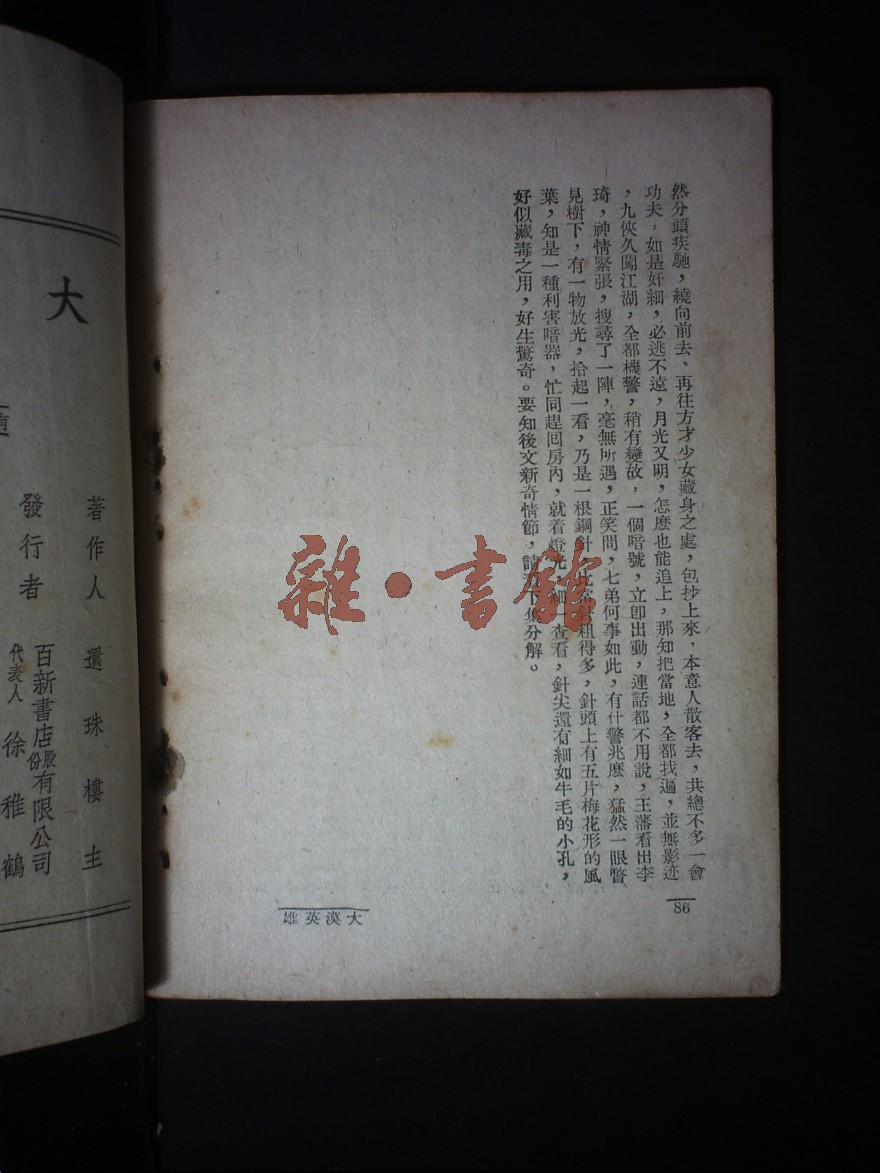 然分頭疾馳，繞向前去、再往方才少女藏身之處，包抄上來，本意人散客去，共總不多一會
功夫，如是奸細，必逃不遠，月光又明，怎麽也能追上，那知把當地，全都找遍，並無影迹
，九俠久闖江湖，全都機警，稍有變故，一個喑號，立卽出動，連話都不用說，王藩看出李
琦，神情緊張，搜尋了一陣，毫無所遇，正笑問，七弟何事如此，有什警兆麽，猛然一眼瞥
見樹下，有一物放光，拾起一看，乃是一根鋼針，比 粗得多，針頭上有五片梅花形的風
葉，知是一種利害喑器，忙同趕囘房內，就着燈光，細一查看，針尖還有細如牛毛的小孔，
好似藏毒之用，好生驚奇。要知後文新奇情節，請 下集分解。
86
大漠英雄
雜·書館
大
著作人 還珠樓主
發行者 百新書店股份有限公司
代表人 徐稚鶴